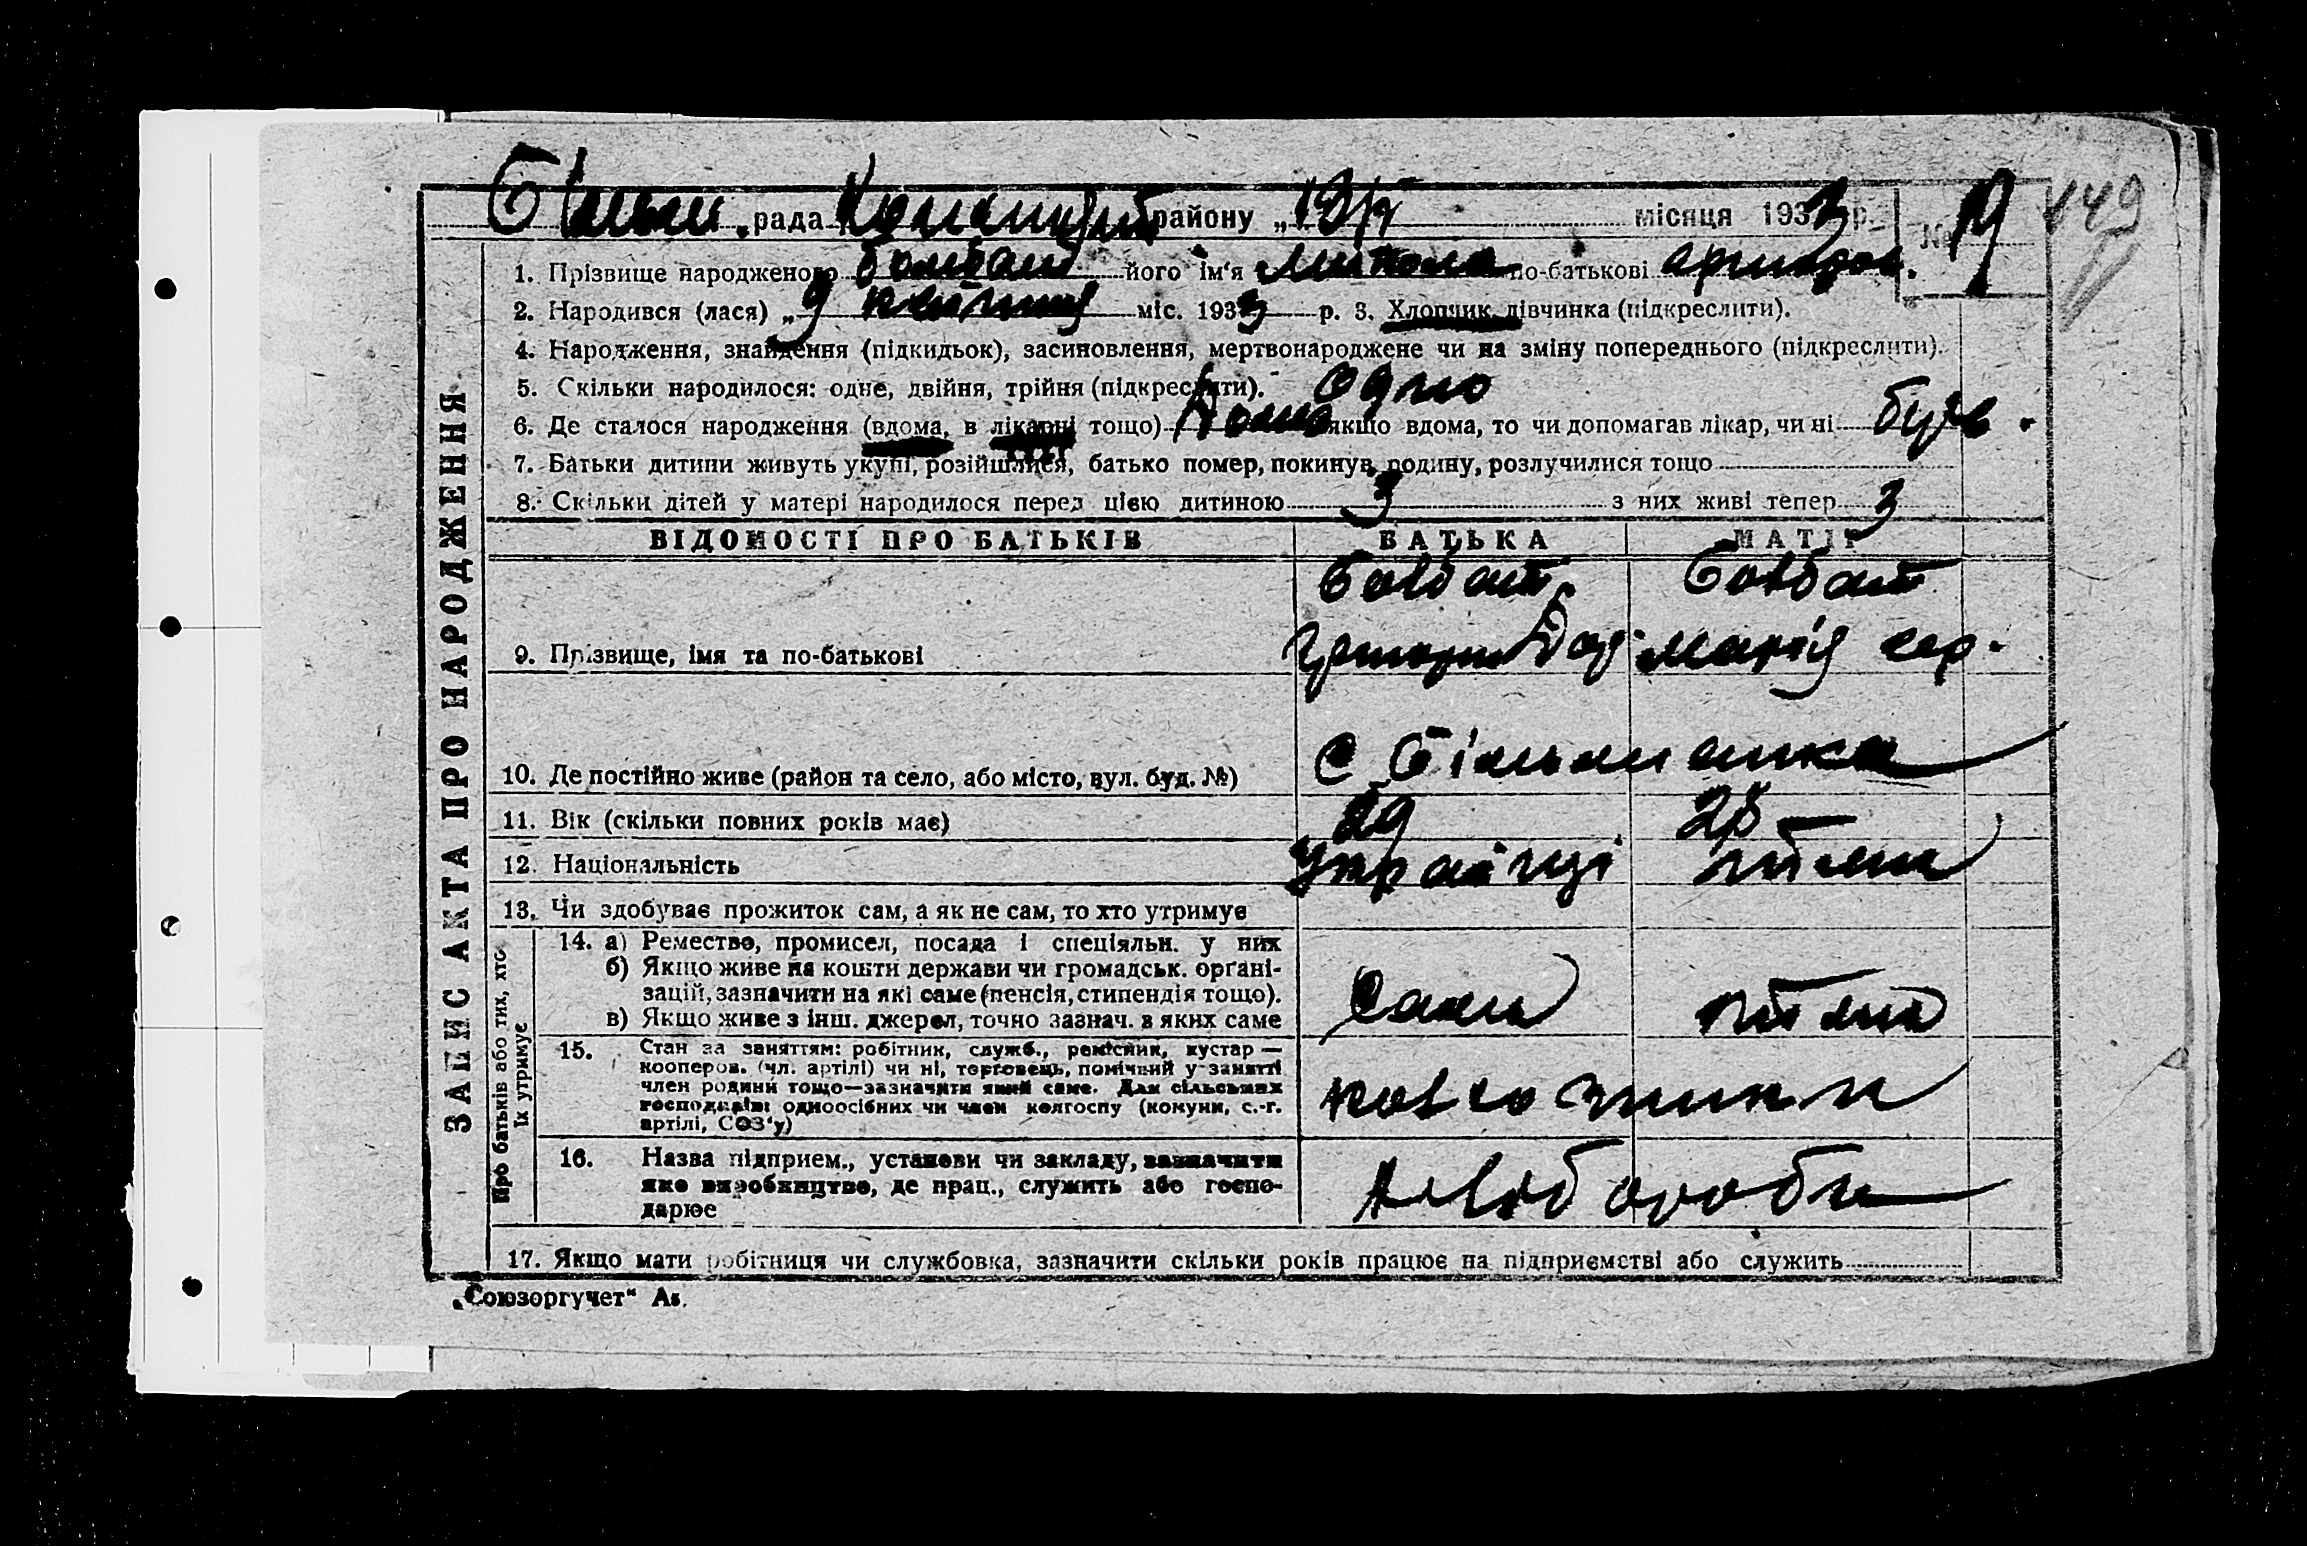 рада району „13/IV місяця 1933 р. № 19 449
1. Прізвище народженого Болбат його ім'я Микола по-батькові
2. Народився (лася) „9 квітня міс. 1933 р. 3. Хлопчик, дівчинка (підкреслити).
4. Народження, знайдення (підкидьок), засиновлення, мертвонароджене чи на зміну попереднього (підкреслити).
5. Скільки народилося: одне, двійня, трійня (підкреслити). одно
6. Де сталося народження (вдома, в лікарні тощо) Дома якщо вдома, то чи допомагав лікар, чи ні
7. Батьки дитини живуть укупі, розійшлися, батько помер, покинув родину, розлучилися тощо
8. Скільки дітей у матері народилося перед цією дитиною 3 з них живі тепер 3
ВІДОМОСТІ ПРО БАТЬКІВ БАТЬКА МАТІР
Болбат Болбат
9. Прізвище, імя та по-батькові Марія
10. Де постійно живе (район та село, або місто, вул. буд. №) С. Більманка
11. Вік (скільки повних років має) 29 28
12. Національність Українці
13. Чи здобуває прожиток сам, а як не сам, то хто утримує
14. а) Ремество, промисел, посада і спеціяльн. у них
б) Якщо живе на кошти держави чи громадськ. орґані-
зацій, зазначити на які саме (пенсія, стипендія тощо).
в) Якщо живе з інш. джерел, точно зазнач. з яких саме Сами
15. Стан за заняттям: робітник, служб., ремісник, кустар —
кооперов. (чл. артілі) чи ні, торговець, помічний у занятті
член родини тощо—зазначити який саме. Для сільських
господарів: одноосібних чи член колгоспу (комуни, с.-г.
артілі, СОЗ'у) колгозники
16. Назва підприєм., установи чи закладу, зазначити
яке виробництво, де прац., служить або госпо-
дарює хлібороби
17. Якщо мати робітниця чи службовка, зазначити скільки років працює на підприємстві або служить
„Союзоргучет"
ЗАПИС АКТА ПРО НАРОДЖЕННЯ
Про батьків або тих, хто
їх утримує